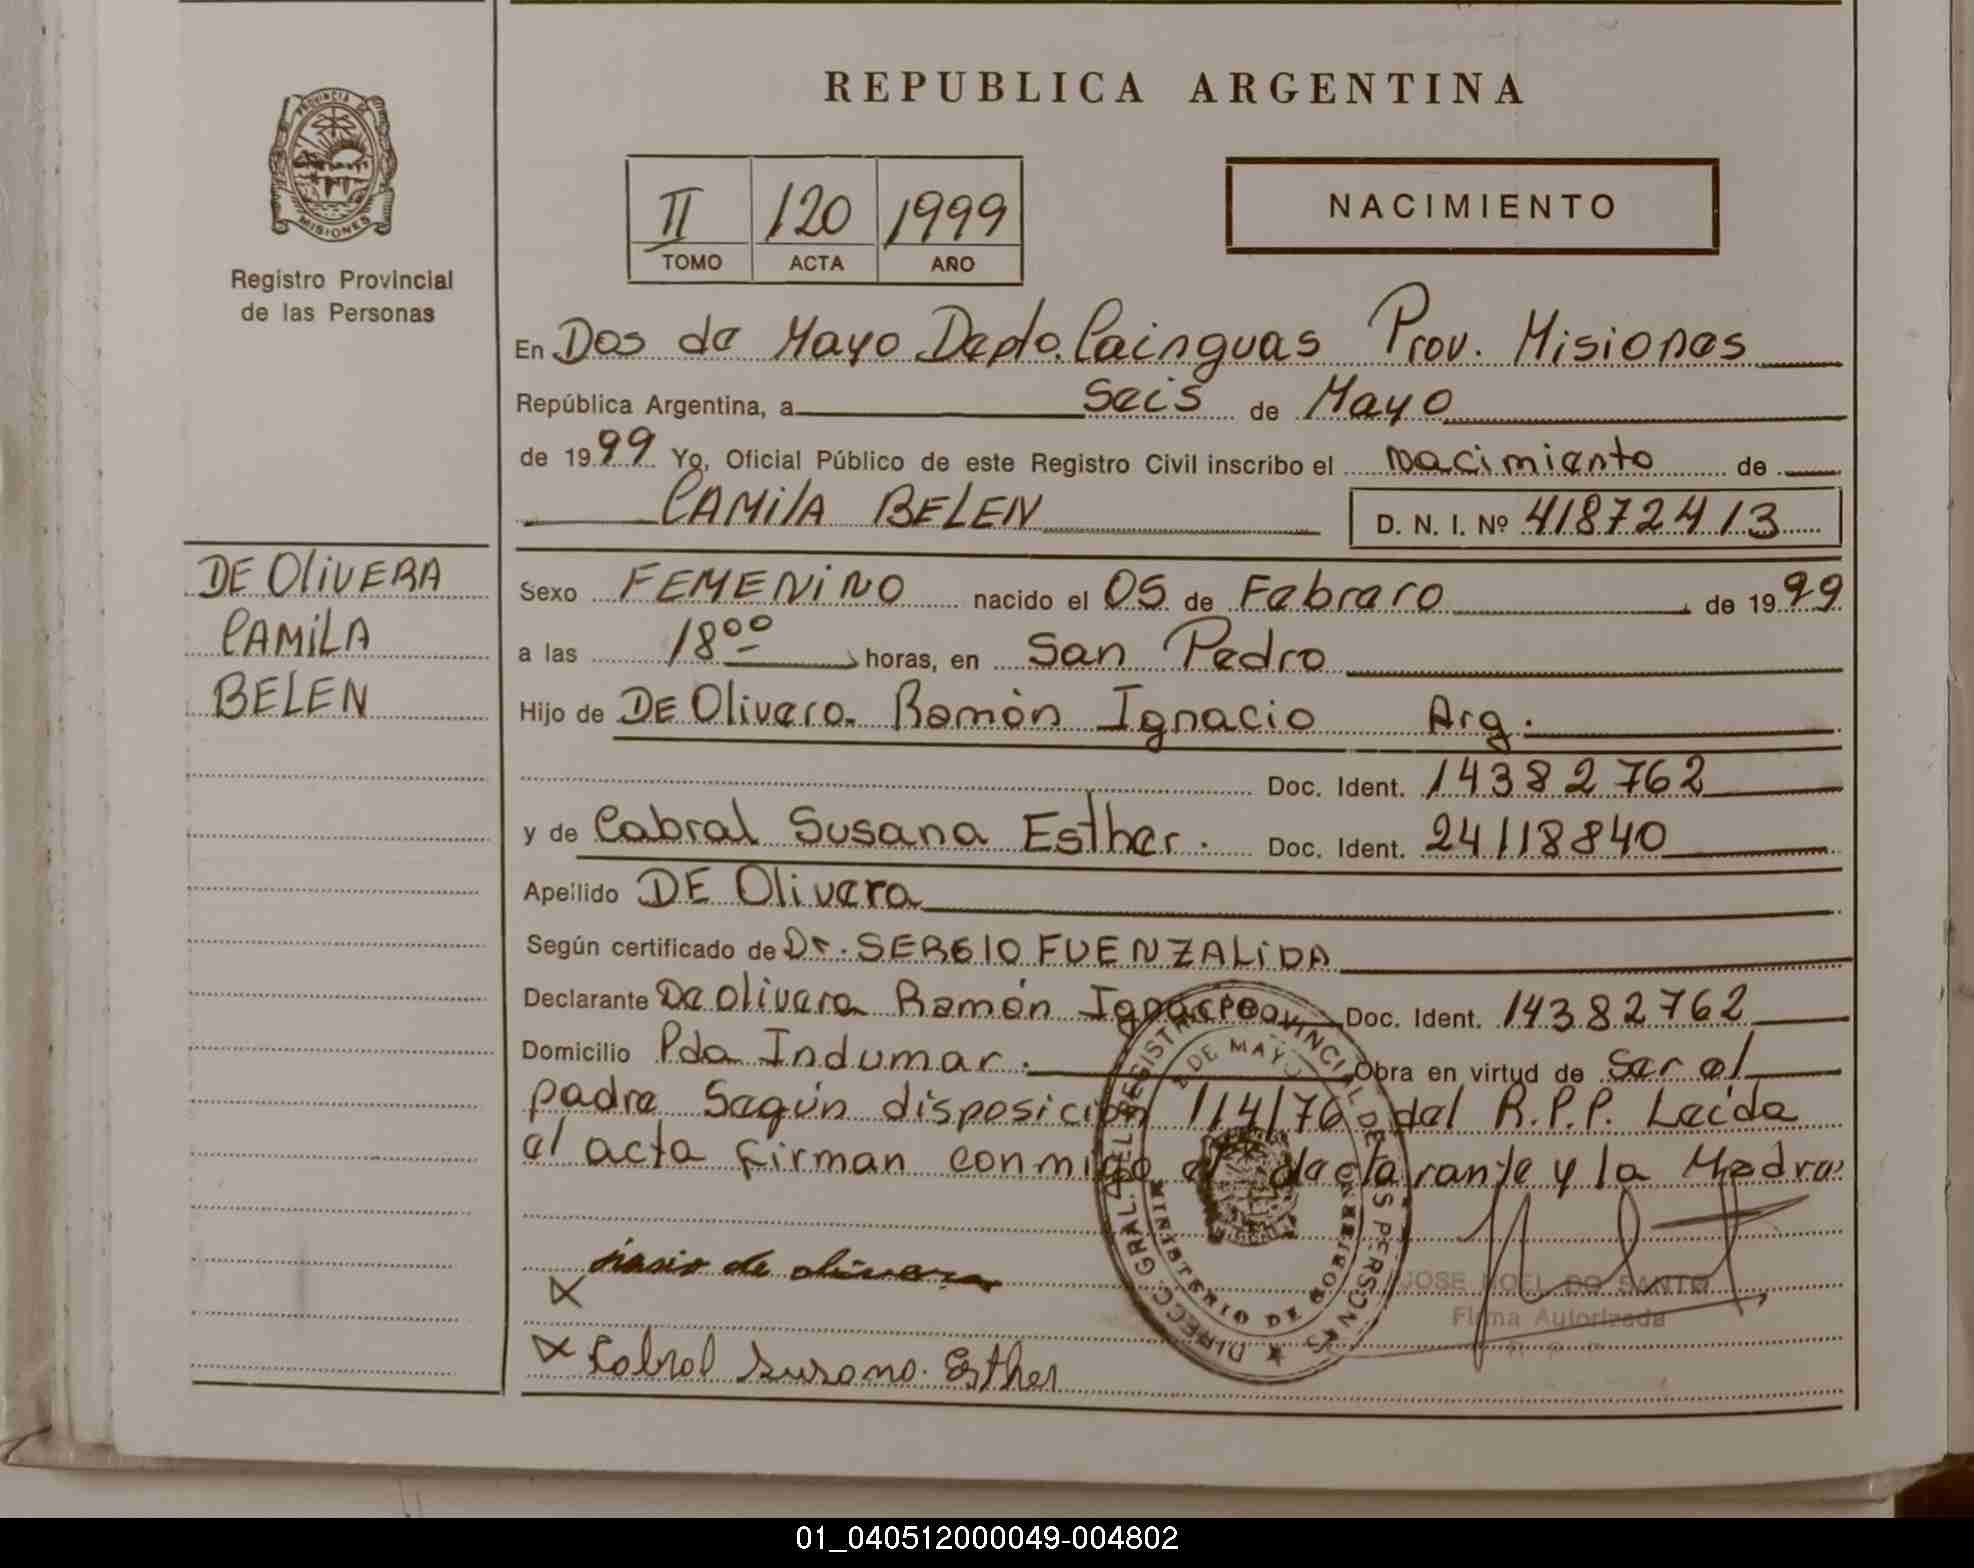 REPUBLICA ARGENTINA
PROVINCIA DE
MISIONES
Registro Provincial
de las Personas
II 120 1999
TOMO ACTA AÑO
NACIMIENTO
En Dos de Mayo Depto. Cainguas Prov. Misiones
República Argentina, a Seis de Mayo
de 1999 Yo, Oficial Público de este Registro Civil inscribo el nacimiento de
CAMILA BELEN D. N. I. Nº 41872413
DE OLIVERA
CAMILA
BELEN
Sexo FEMENINO nacido el 05 de Febrero de 1999
a las 18 00 horas, en San Pedro
Hijo de DE Olivera. Ramón Ignacio Arg.
Doc. Ident. 14382762
y de Cabral Susana Esther. Doc. Ident. 24118840
Apellido DE Olivera
Según certificado de Dr. SERGIO FUENZALIDA
Declarante De Olivera Ramón Ignacio Doc. Ident. 14382762
Domicilio Pda Indumar. Obra en virtud de Ser el
padre Según disposición 114/76 del R.P.P. Leida
el acta firman conmigo el declarante y la Madre
DIRECC. GRAL. DEL REGISTRO PROVINCIAL DE LAS PERSONAS
2 DE MAYO
MINISTERIO DE GOBIERNO
de olivera
JOSE NOEL DO SANTO
Firma Autorizada
Cabral Susana. Esther
01_040512000049-004802